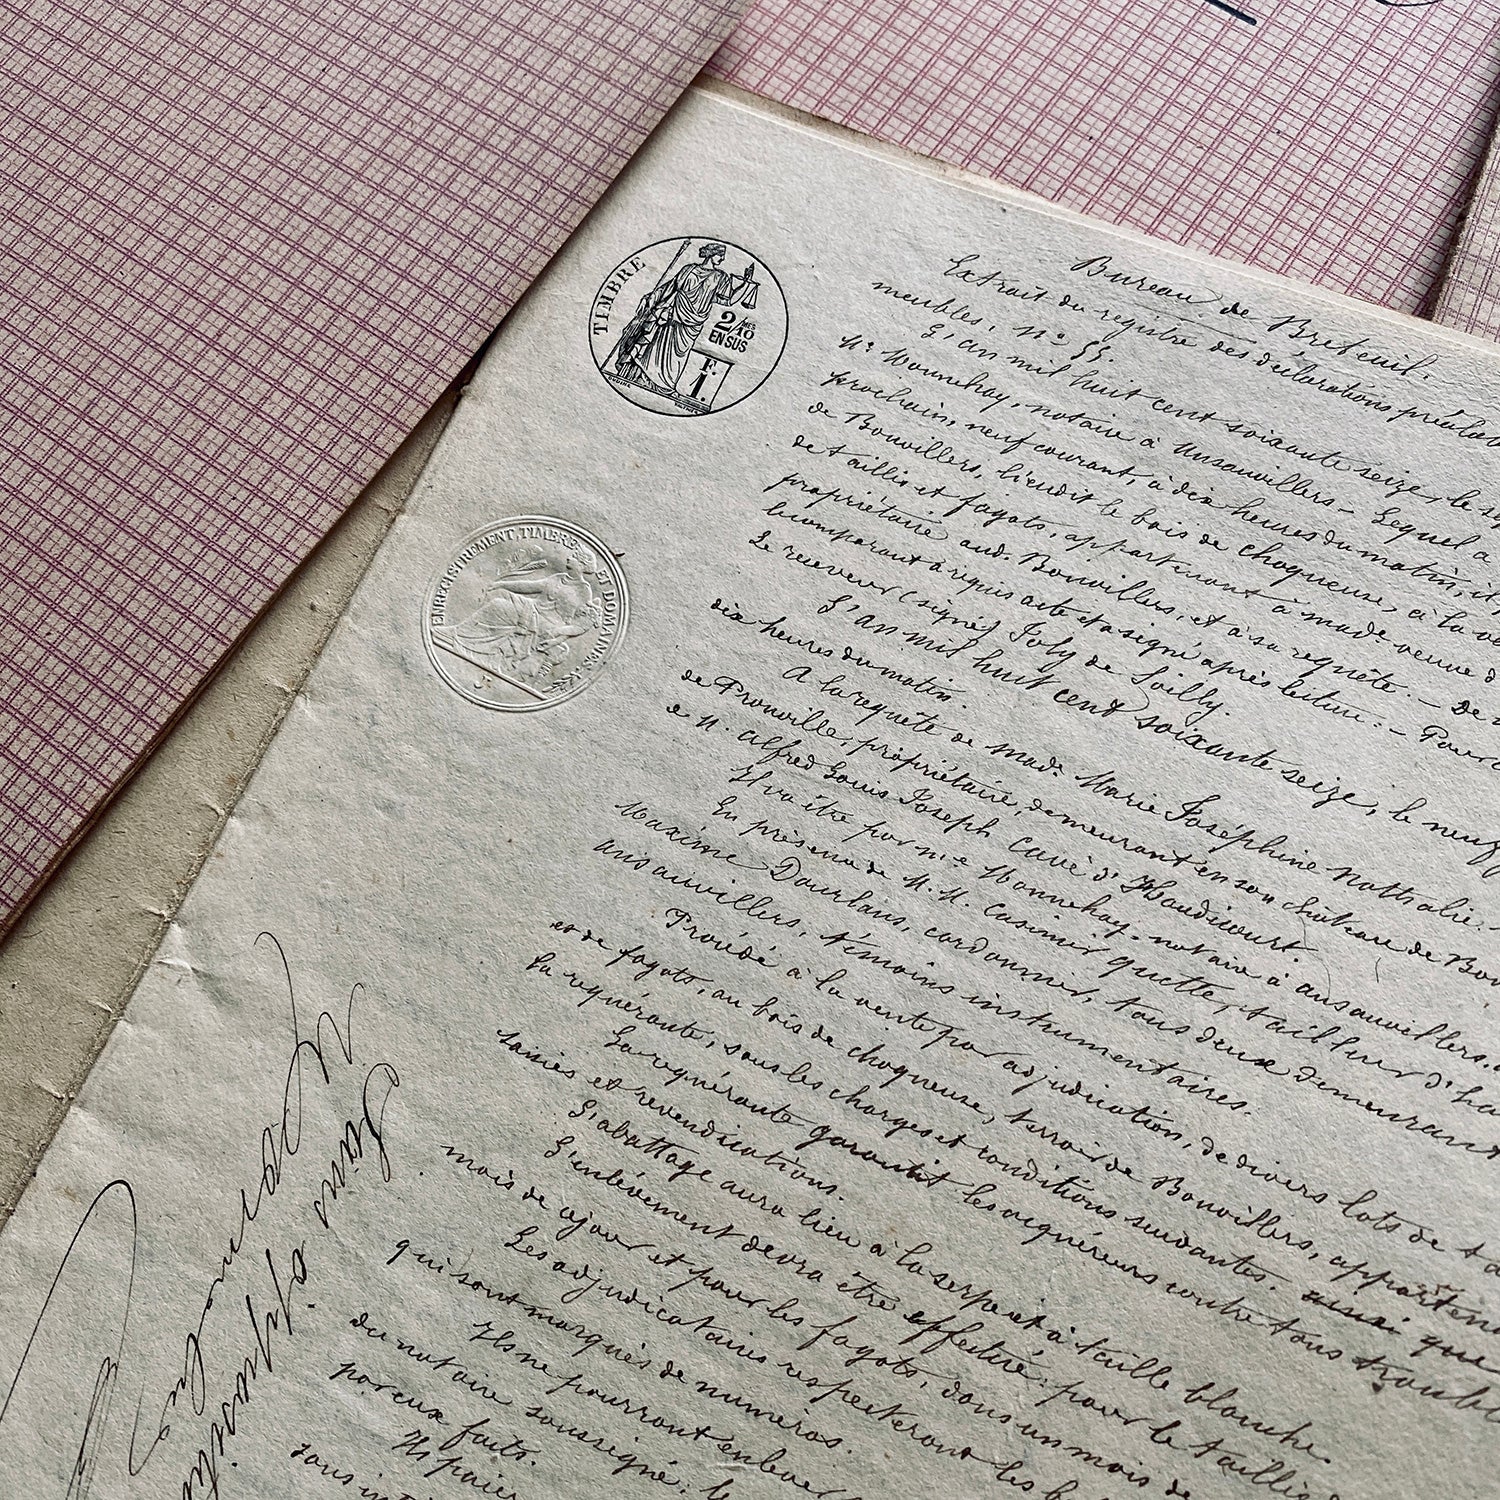 TIMBRE
2/10 MES
EN SUS
F.
1.
ENREGISTREMENT, TIMBRE ET DOMAINES
Bureau de Breteuil.
Extrait du registre des déclarations préalab
meubles, N° 55.
L'an mil huit cent soixante seize, le
Me Monnehay, notaire à Ansauvillers – Lequel a
prochain, neuf courant, à dix heures du matin, il
de Bonvillers, lieudit le bois de choqueuse, à la
de taillis et fagots, appartenant à made veuve
propriétaire aud. Bonvillers, et à sa requête. – De
comparant a requis acte et a signé après lecture. – Pour
Le receveur (signé) Joly de Sailly.
L'an mil huit cent soixante seize, le neuf
dix heures du matin.
A la requête de made Marie Joséphine Nathalie
de Pronville, propriétaire, demeurant en son château de Bon
& M. Alfred Louis Joseph Cuvé d'Haudicourt.
Il va être par me Monnehay, notaire à ansauvillers.
En présence de M.M. Casimir quette, tailleur d'ha
Maxime Dourlans, cordonnier, tous deux demeurant
ansauvillers, témoins instrumentaires.
Procédé à la vente par adjudication, de divers lots de ta
et de fagots, au bois de choqueuse, terroir de Bonvillers, appartena
la requérante, sous les charges et conditions suivantes.
La requérante garantit les acquéreurs contre tous troubl
saisies et revendications.
L'abattage aura lieu à la serpe et à taille blanche.
L'enlèvement devra être effectué: pour le taillis
mois de ce jour et pour les fagots, dans un mois de
Les adjudicataires respecteront les
qui sont marqués de numéros.
Ils ne pourront enlever
du notaire soussigné: le
par eux faits.
Ils paier
sans int